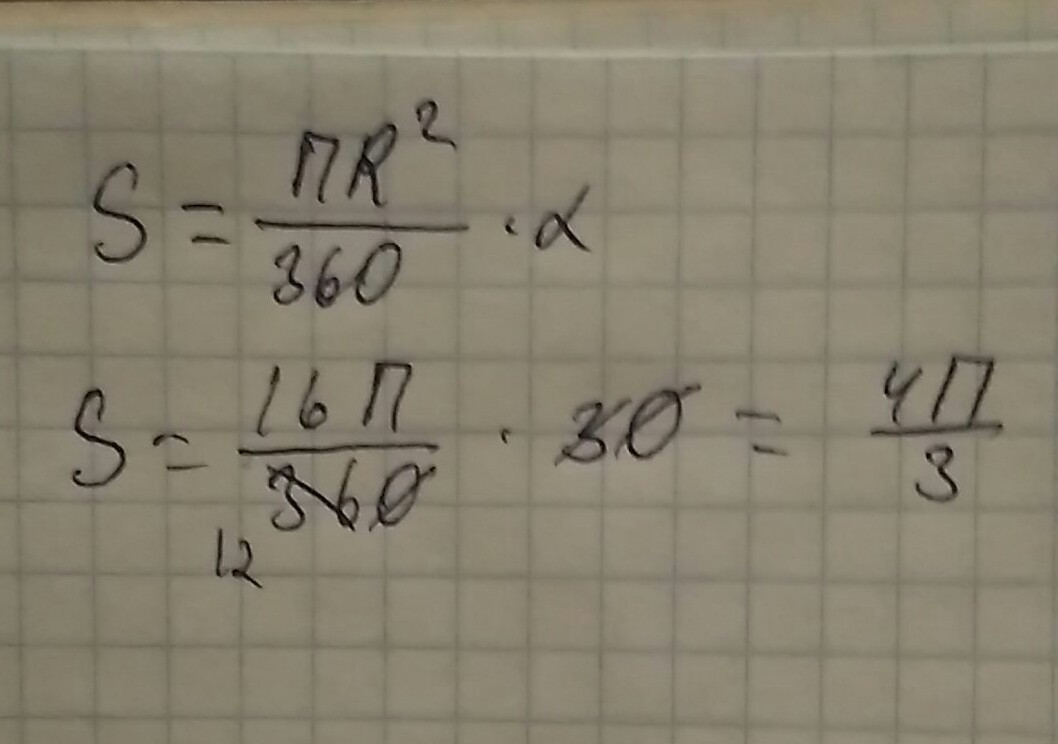 S = ПR² / 360 · α
S = 16П / 360 · 30 = 4П / 3
12